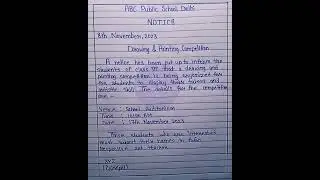 ABC Public School, Delhi
NOTICE
8th November, 2023
Drawing & Painting Competition
A notice has been put up to inform the
students of class VI that a drawing and
painting competition is being organized for
the students to display their talent and
artistic skill. The details for the competition
are -
Venue : School Auditorium
Time : 10:00 AM
Date : 17th November 2023
Those students who are interested
must submit their names to their
respective class teachers.
XYZ
(Principal)